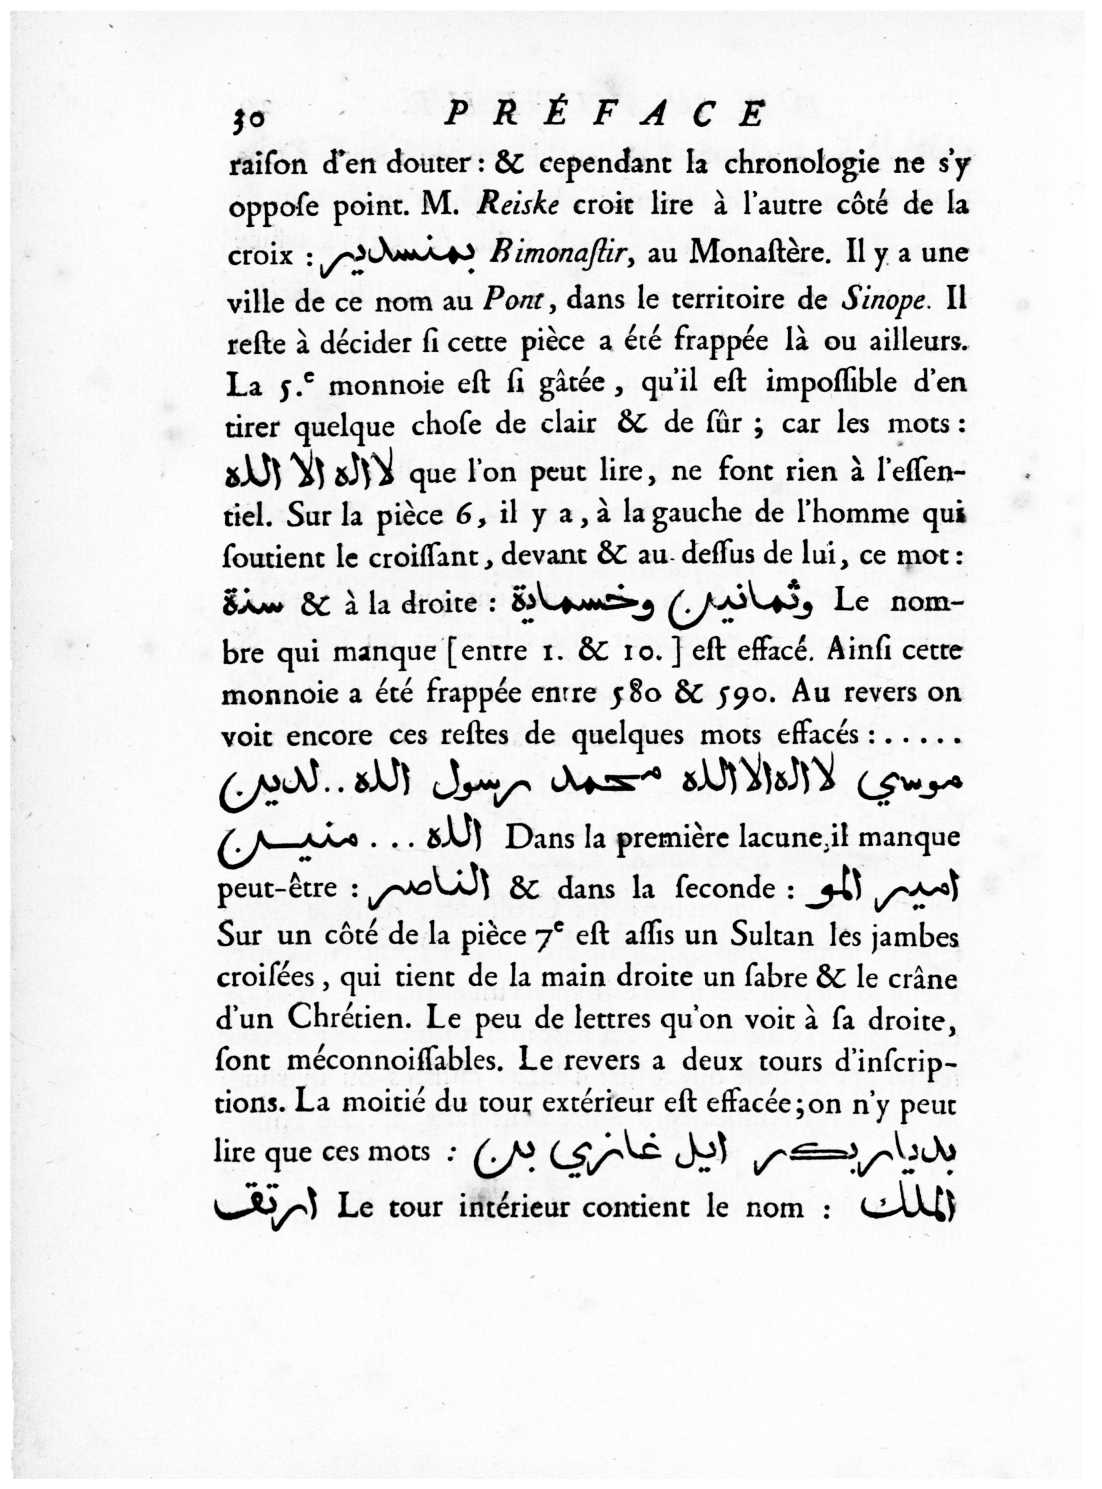 30 PRÉFACE
raiſon d'en douter : & cependant la chronologie ne s'y
oppoſe point. M. Reiske croit lire à l'autre côté de la
croix : بمنسدير Bimonaſtir, au Monaſtère. Il y a une
ville de ce nom au Pont, dans le territoire de Sinope. Il
reſte à décider ſi cette pièce a été frappée là ou ailleurs.
La 5.e monnoie eſt ſi gâtée, qu'il eſt impoſſible d'en
tirer quelque choſe de clair & de ſûr ; car les mots :
لااله الا الله que l'on peut lire, ne font rien à l'eſſen-
tiel. Sur la pièce 6, il y a, à la gauche de l'homme qui
ſoutient le croiſſant, devant & au-deſſus de lui, ce mot :
سنة & à la droite : وثمانين وخسماية Le nom-
bre qui manque [entre 1. & 10.] eſt effacé. Ainſi cette
monnoie a été frappée entre 580 & 590. Au revers on
voit encore ces reſtes de quelques mots effacés : . . . . .
موسي لااله الا الله محمد رسول الله . . لدين
الله . . . منين Dans la première lacune, il manque
peut-être : الناصر & dans la ſeconde : امير المو
Sur un côté de la pièce 7e eſt aſſis un Sultan les jambes
croiſées, qui tient de la main droite un ſabre & le crâne
d'un Chrétien. Le peu de lettres qu'on voit à ſa droite,
ſont méconnoiſſables. Le revers a deux tours d'inſcrip-
tions. La moitié du tour extérieur eſt effacée ; on n'y peut
lire que ces mots : بديار بكر ايل غازي بن
ارتق Le tour intérieur contient le nom : الملك